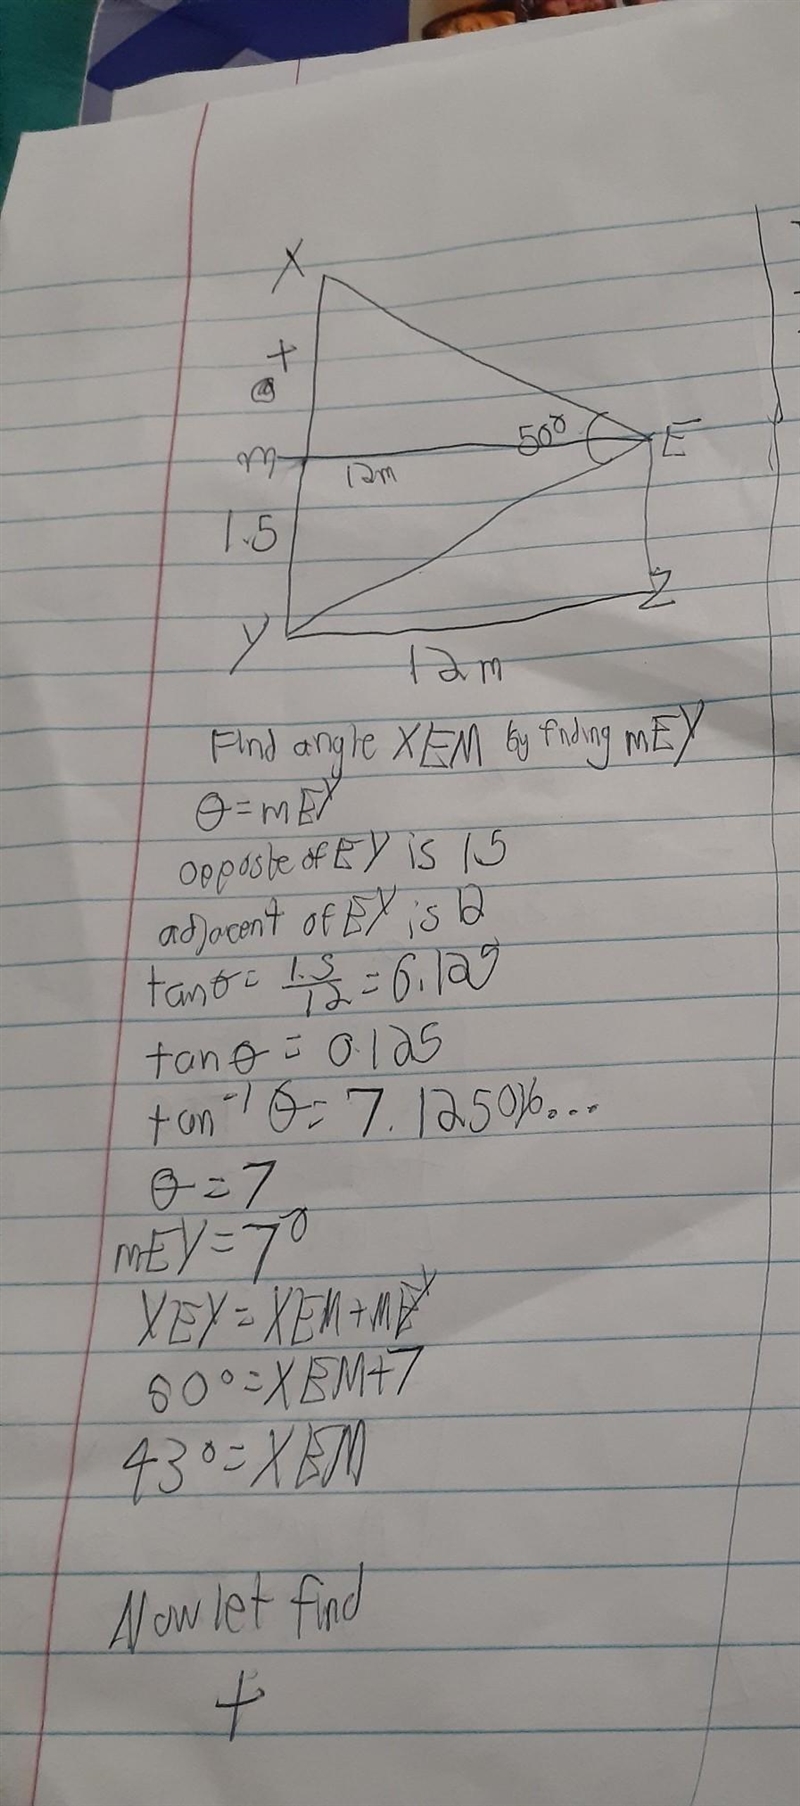 X
t
m
12m
50°
E
1.5
Y
Z
12m
Find angle XEM by finding mEY
θ=mEY
opposite of EY is 15
adjacent of EY is 12
tanθ= 1.5/12 = 0.125
tan θ = 0.125
tan⁻¹ θ= 7.1250%...
θ=7
mEY=7°
XEY=XEM+mEY
50°=XEM+7
43°=XEM
Now let find
t